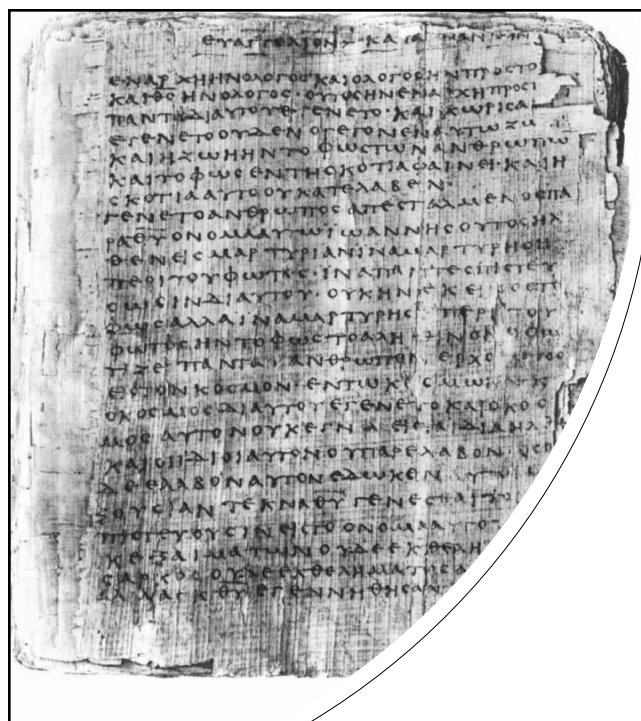 ΕΥΑΓΓΕΛΙΟΝ ΚΑΤΑ
ΕΝΑΡΧΗΗΝΟΛΟΓΟϹΚΑΙΟΛΟΓΟϹΗΝΠΡΟϹΤΟ
ΚΑΙΘϹΗΝΟΛΟΓΟϹ·ΟΥΤΟϹΗΝΕΝΑΡΧΗΠΡΟϹΤ
ΠΑΝΤΑΔΙΑΥΤΟΥΕΓΕΝΕΤΟ·ΚΑΙΧΩΡΙϹΑ
ΕΓΕΝΕΤΟΟΥΔΕΝΟΓΕΓΟΝΕΝΑΥΤΩΖΩ
ΚΑΙΗΖΩΗΗΝΤΟΦΩϹΤΩΝΑΝΘΡΩΠΩ
ΚΑΙΤΟΦΩϹΕΝΤΗϹΚΟΤΙΑΦΑΙΝΕΙ·ΚΑΙΗ
ϹΚΟΤΙΑΑΥΤΟΟΥΚΑΤΕΛΑΒΕΝ·
ΓΕΝΕΤΟΑΝΘΡΩΠΟϹΑΠΕϹΤΑΛΜΕΝΟϹΠΑ
ΡΑΘΥΟΝΟΜΑΑΥΤΩΙΩΑΝΝΗϹΟΥΤΟϹΗΛ
ΘΕΝΕΙϹΜΑΡΤΥΡΙΑΝΙΝΑΜΑΡΤΥΡΗϹΗ
ΠΕΡΙΤΟΥΦΩΤΟϹ·ΙΝΑΠΑΝΤΕϹΠΙϹΤΕΥ
ϹΩϹΙΝΔΙΑΥΤΟΥ ΟΥΚΗΝΕΚΕΙΝΟϹΤΟ
ΦΩϹΑΛΛΑΙΝΑΜΑΡΤΥΡΗϹΗΠΕΡΙΤΟΥ
ΦΩΤΟϹΗΝΤΟΦΩϹΤΟΑΛΗΘΙΝΟΝΟΦΩ
ΤΙΖΕΙΠΑΝΤΑΑΝΘΡΩΠΟΝΕΡΧΟΜΕΝΟΝ
ΕΙϹΤΟΝΚΟϹΜΟΝ·ΕΝΤΩΚΟϹΜΩΗΝΚ
ΟΚΟϹΜΟϹΔΙΑΥΤΟΥΕΓΕΝΕΤΟΚΑΙΟΚΟϹ
ΜΟϹΑΥΤΟΝΟΥΚΕΓΝΩΕΙϹΤΑΙΔΙΑΗΛΘ
ΚΑΙΟΙΙΔΙΟΙΑΥΤΟΝΟΥΠΑΡΕΛΑΒΟΝ·ΟϹΟΙ
ΔΕΕΛΑΒΟΝΑΥΤΟΝΕΔΩΚΕΝΑΥΤΟΙ
ΞΟΥϹΙΑΝΤΕΚΝΑΘΥΓΕΝΕϹΘΑΙΤΟΙ
ΠΙϹΤΕΥΟΥϹΙΝΕΙϹΤΟΟΝΟΜΑΑΥΤΟΥ
ΚΕΞΑΙΜΑΤΩΝΟΥΔΕΕΚΘΕΛΗ
ϹΑΡΚΟϹΟΥΔΕΕΚΘΕΛΗΜΑΤΟϹΑ
ΑΛΛΑΕΚΘΥΕΓΕΝΝΗΘΗϹΑΝ